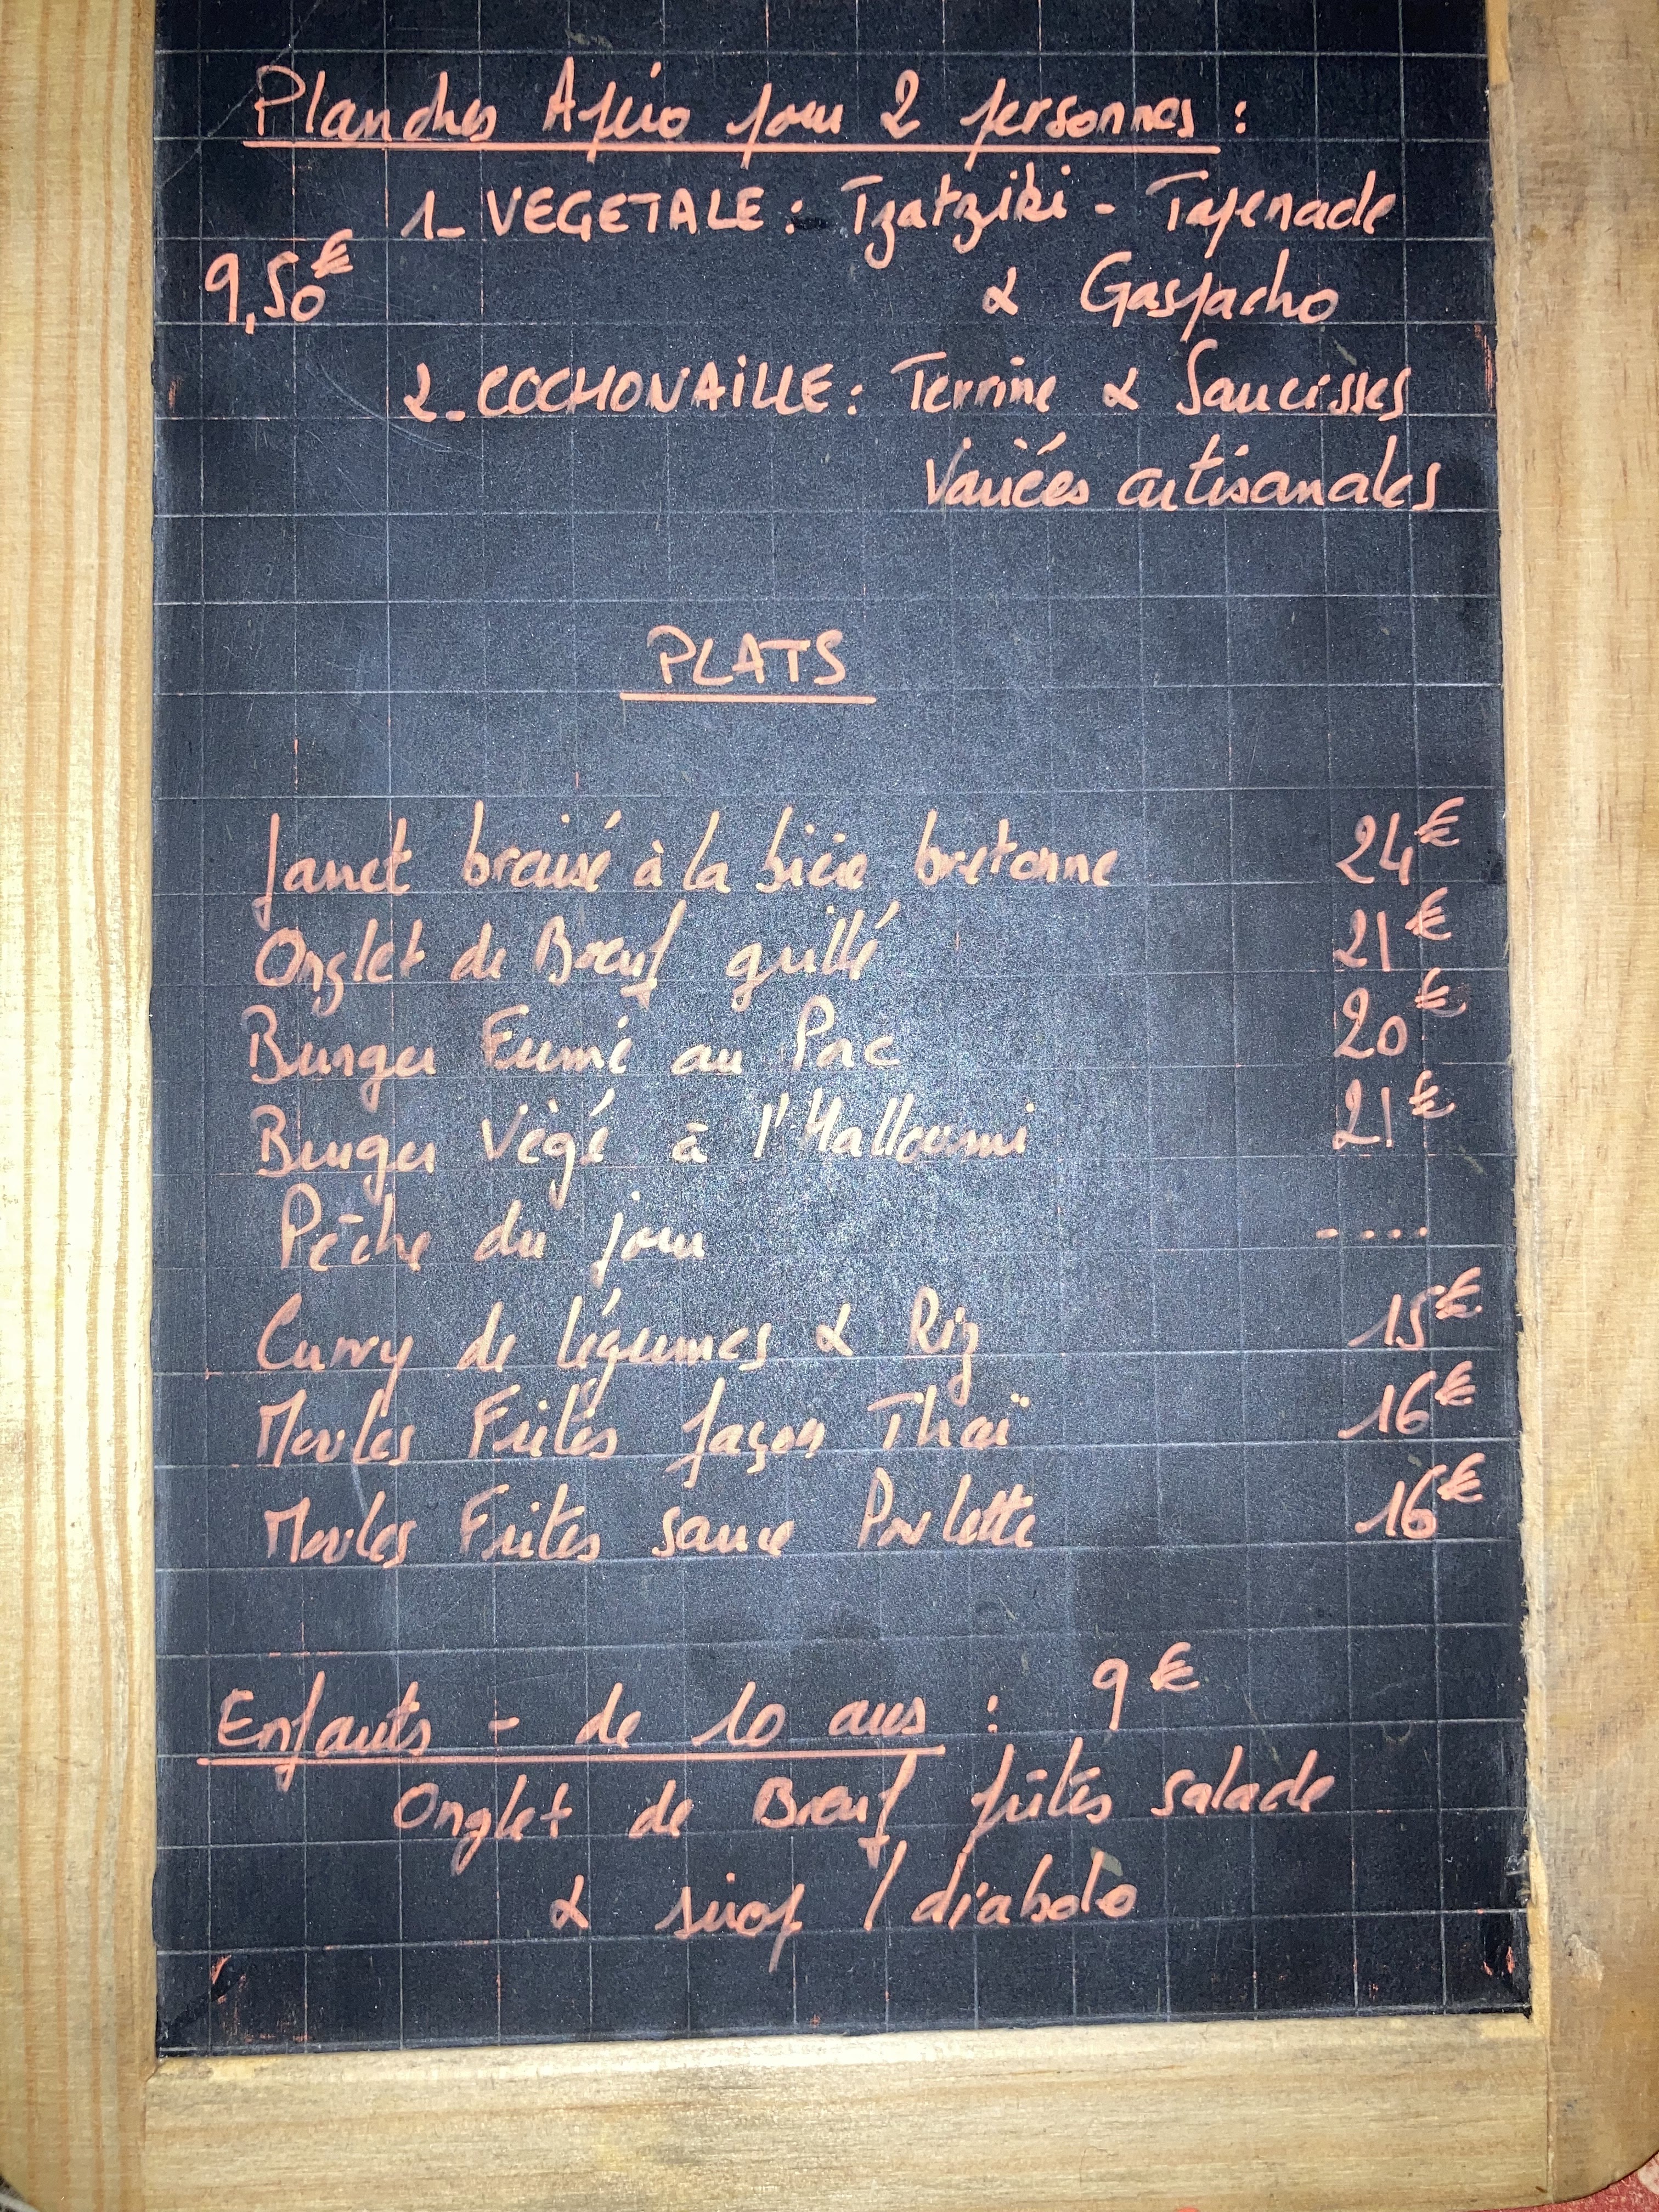 Planches Apéro pour 2 personnes :
1_ VEGETALE : Tzatziki - Tapenade
9,50€ & Gaspacho
2_ COCHONAILLE : Terrine & Saucisses
Variées artisanales
PLATS
Jarret braisé à la bière bretonne 24€
Onglet de Bœuf grillé 21€
Burger Fumé au Porc 20€
Burger Végé à l'Halloumi 21€
Pêche du jour ....
Curry de légumes & Riz 15€
Moules Frites façon Thaï 16€
Moules Frites sauce Poulette 16€
Enfants - de 10 ans : 9€
Onglet de Bœuf frites salade
& sirop / diabolo